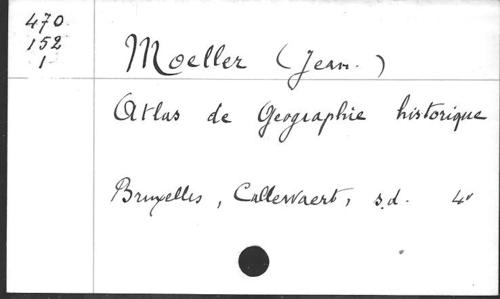 470
152
1
Moeller (Jean.)
Atlas de Geographie historique
Bruxelles, Callewaert, s.d. 4°